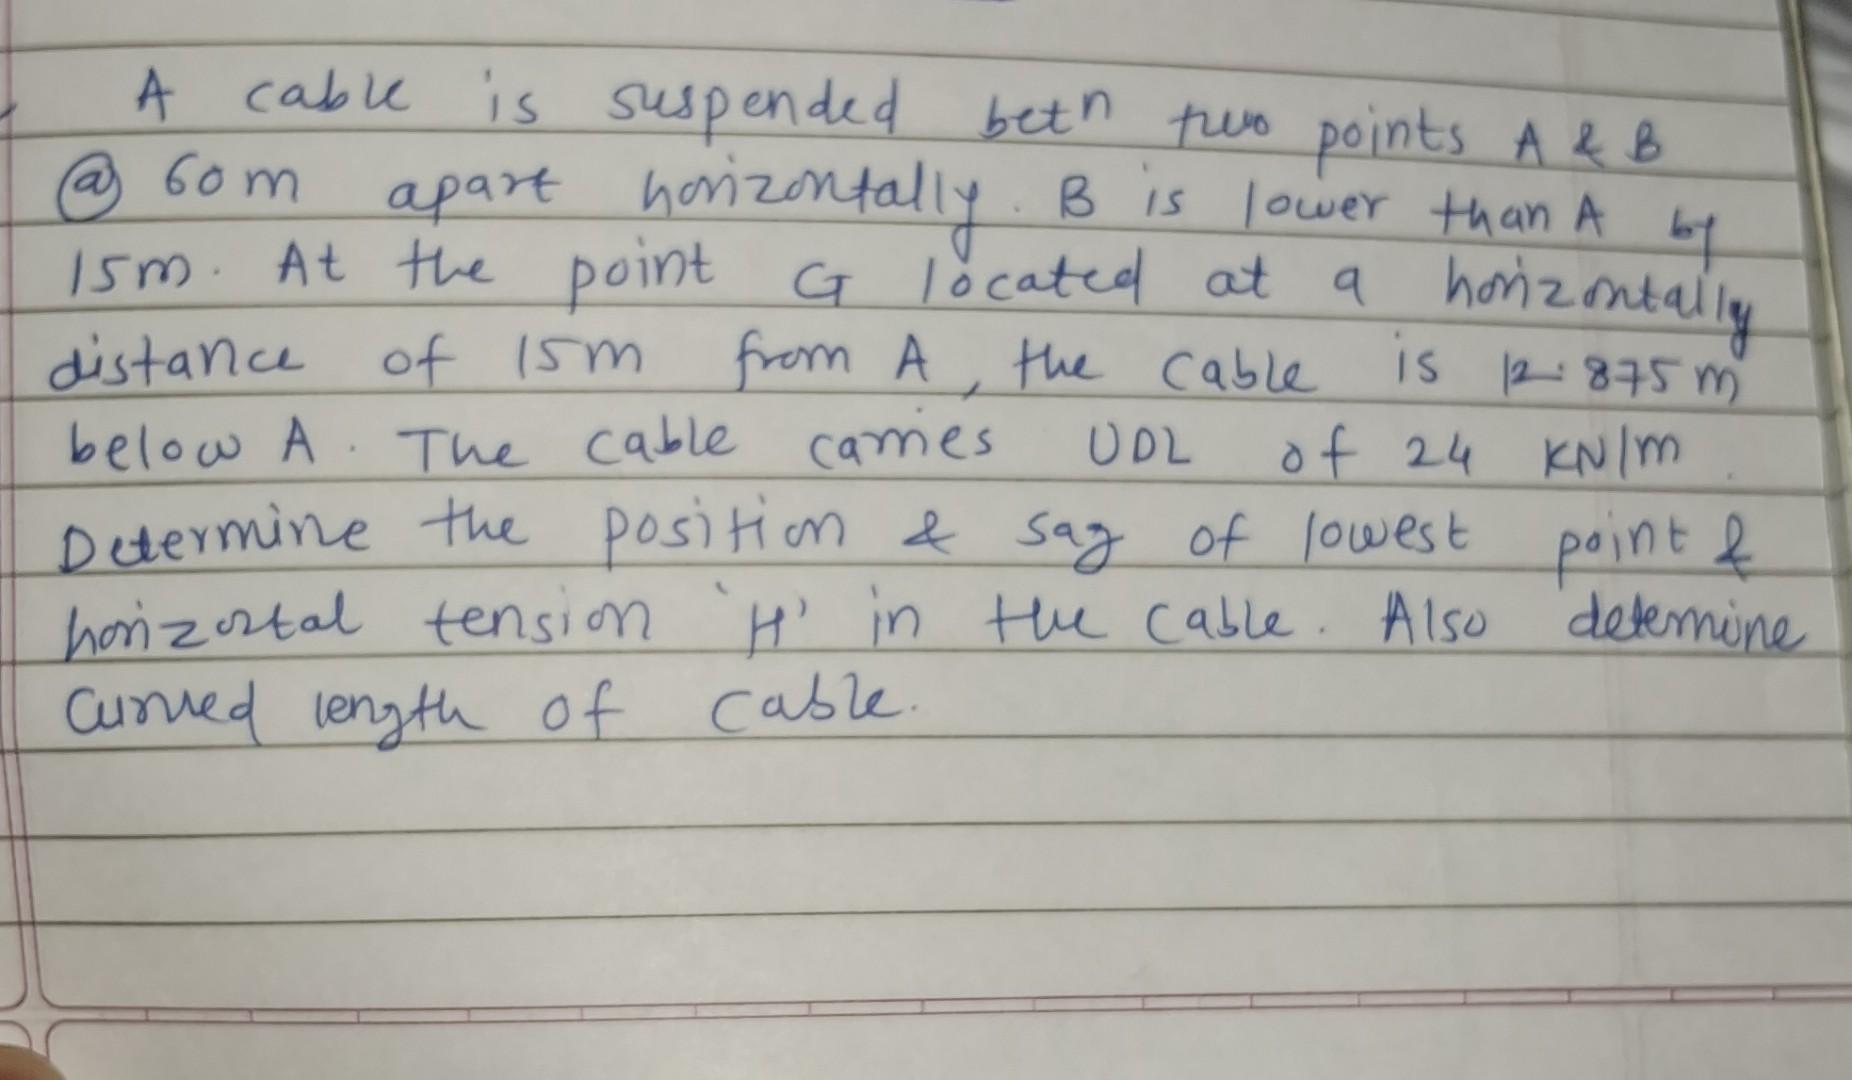 A cable is suspended betn two points A & B
@ 60m apart horizontally. B is lower than A by
15m. At the point G located at a horizontally
distance of 15m from A, the cable is 12.875m
below A. The cable carries UDL of 24 KN/m.
Determine the position & sag of lowest point &
horizontal tension 'H' in the cable. Also determine
curved length of cable.